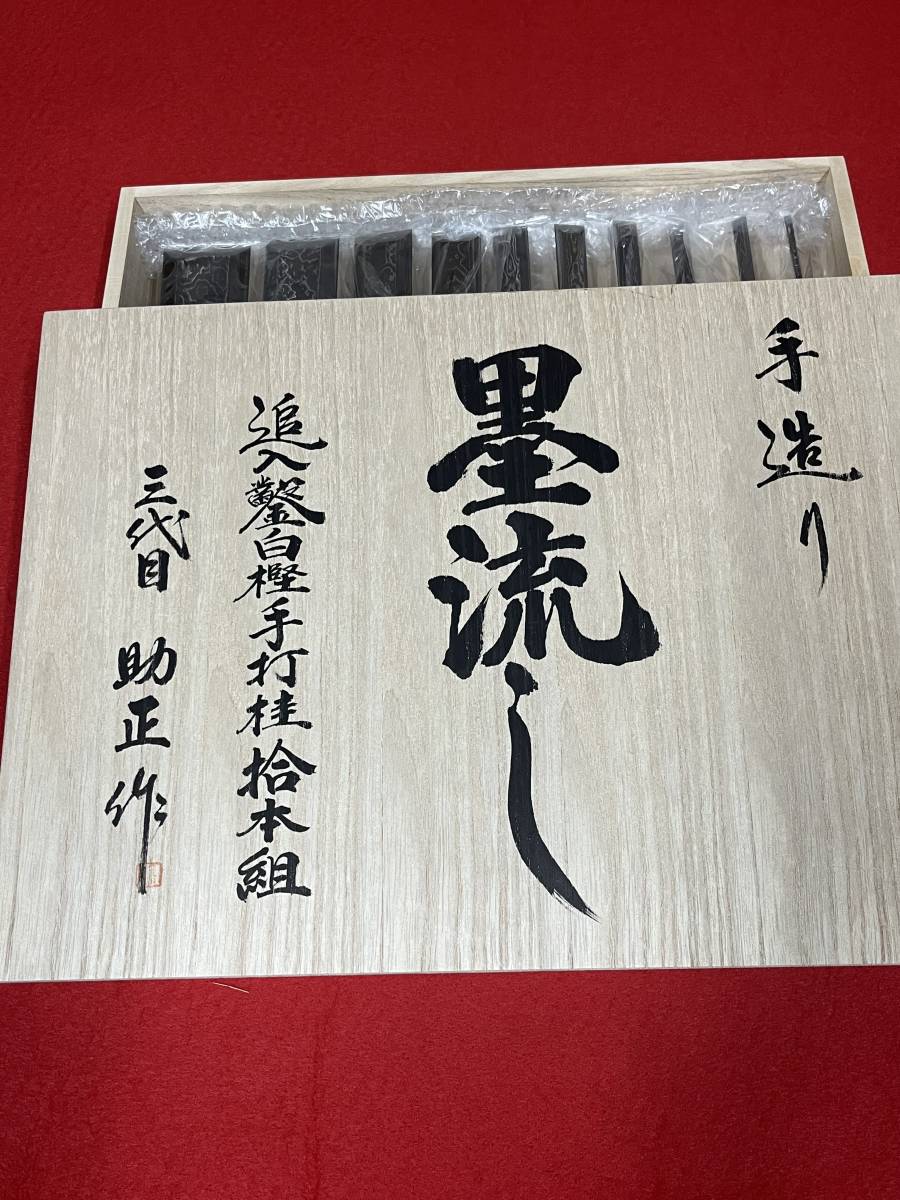 手造り
墨流し
追入鑿白樫手打桂拾本組
三代目 助正作